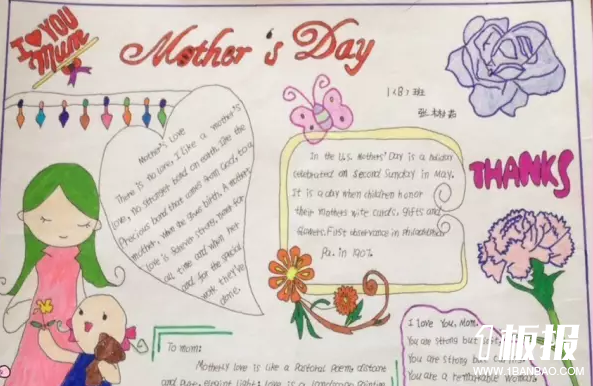 I ♥ YOU
Mum
Mother's Day
1(8)班
THANKS
Mother's Love
There is no love, like a mother's
love, no stronger bond on earth. like the
Precious bond that comes from God, to a
mother, when she gives birth. A mother's
love is forever strong, never for
all time and when her
and for the special
work they've
done.
In the U.S. Mothers' Day is a holiday
celebrated on second Sunday in May.
It is a day when children honor
their mothers wite cards, gifts and
flowers. First observance in Philadelphia
Pa. in 1907.
To mum:
Motherly love is like a Pastoral Poems distant
and pure, elegant light; Love is a landscape painting
I Love You, Mom
You are strong but
You are strong but
You are a remarkable Woman
板报
WWW.1BANBAO.COM